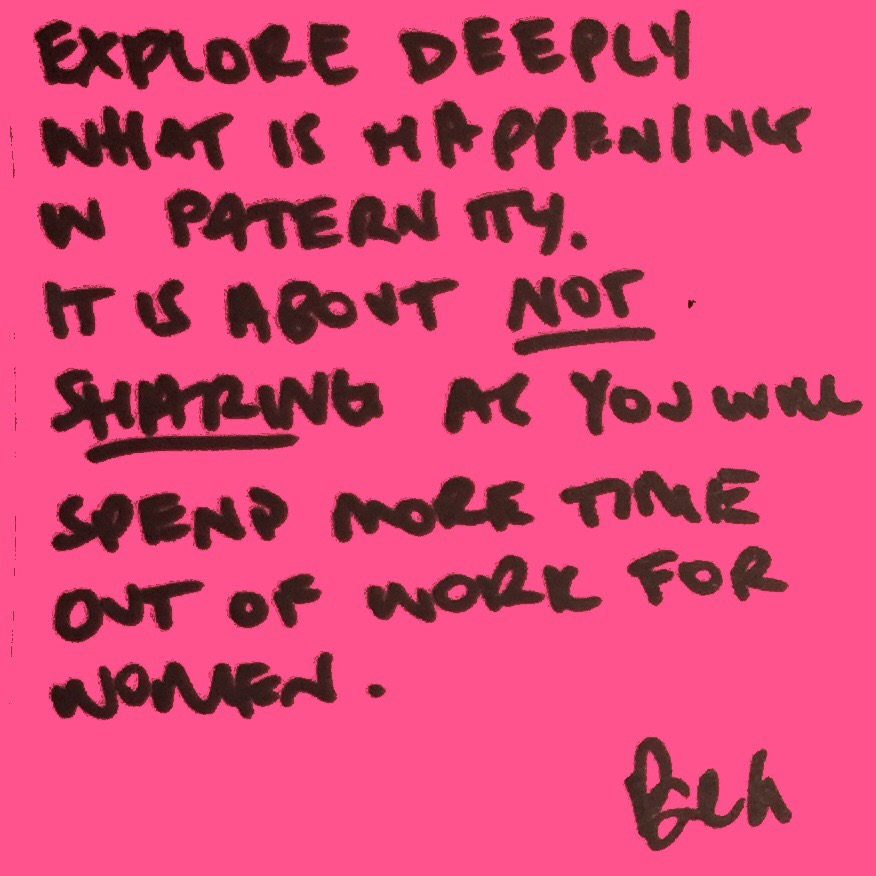 EXPLORE DEEPLY
WHAT IS HAPPENING
IN PATERNITY.
IT IS ABOUT NOT
SHARING AS YOU WILL
SPEND MORE TIME
OUT OF WORK FOR
WOMEN.